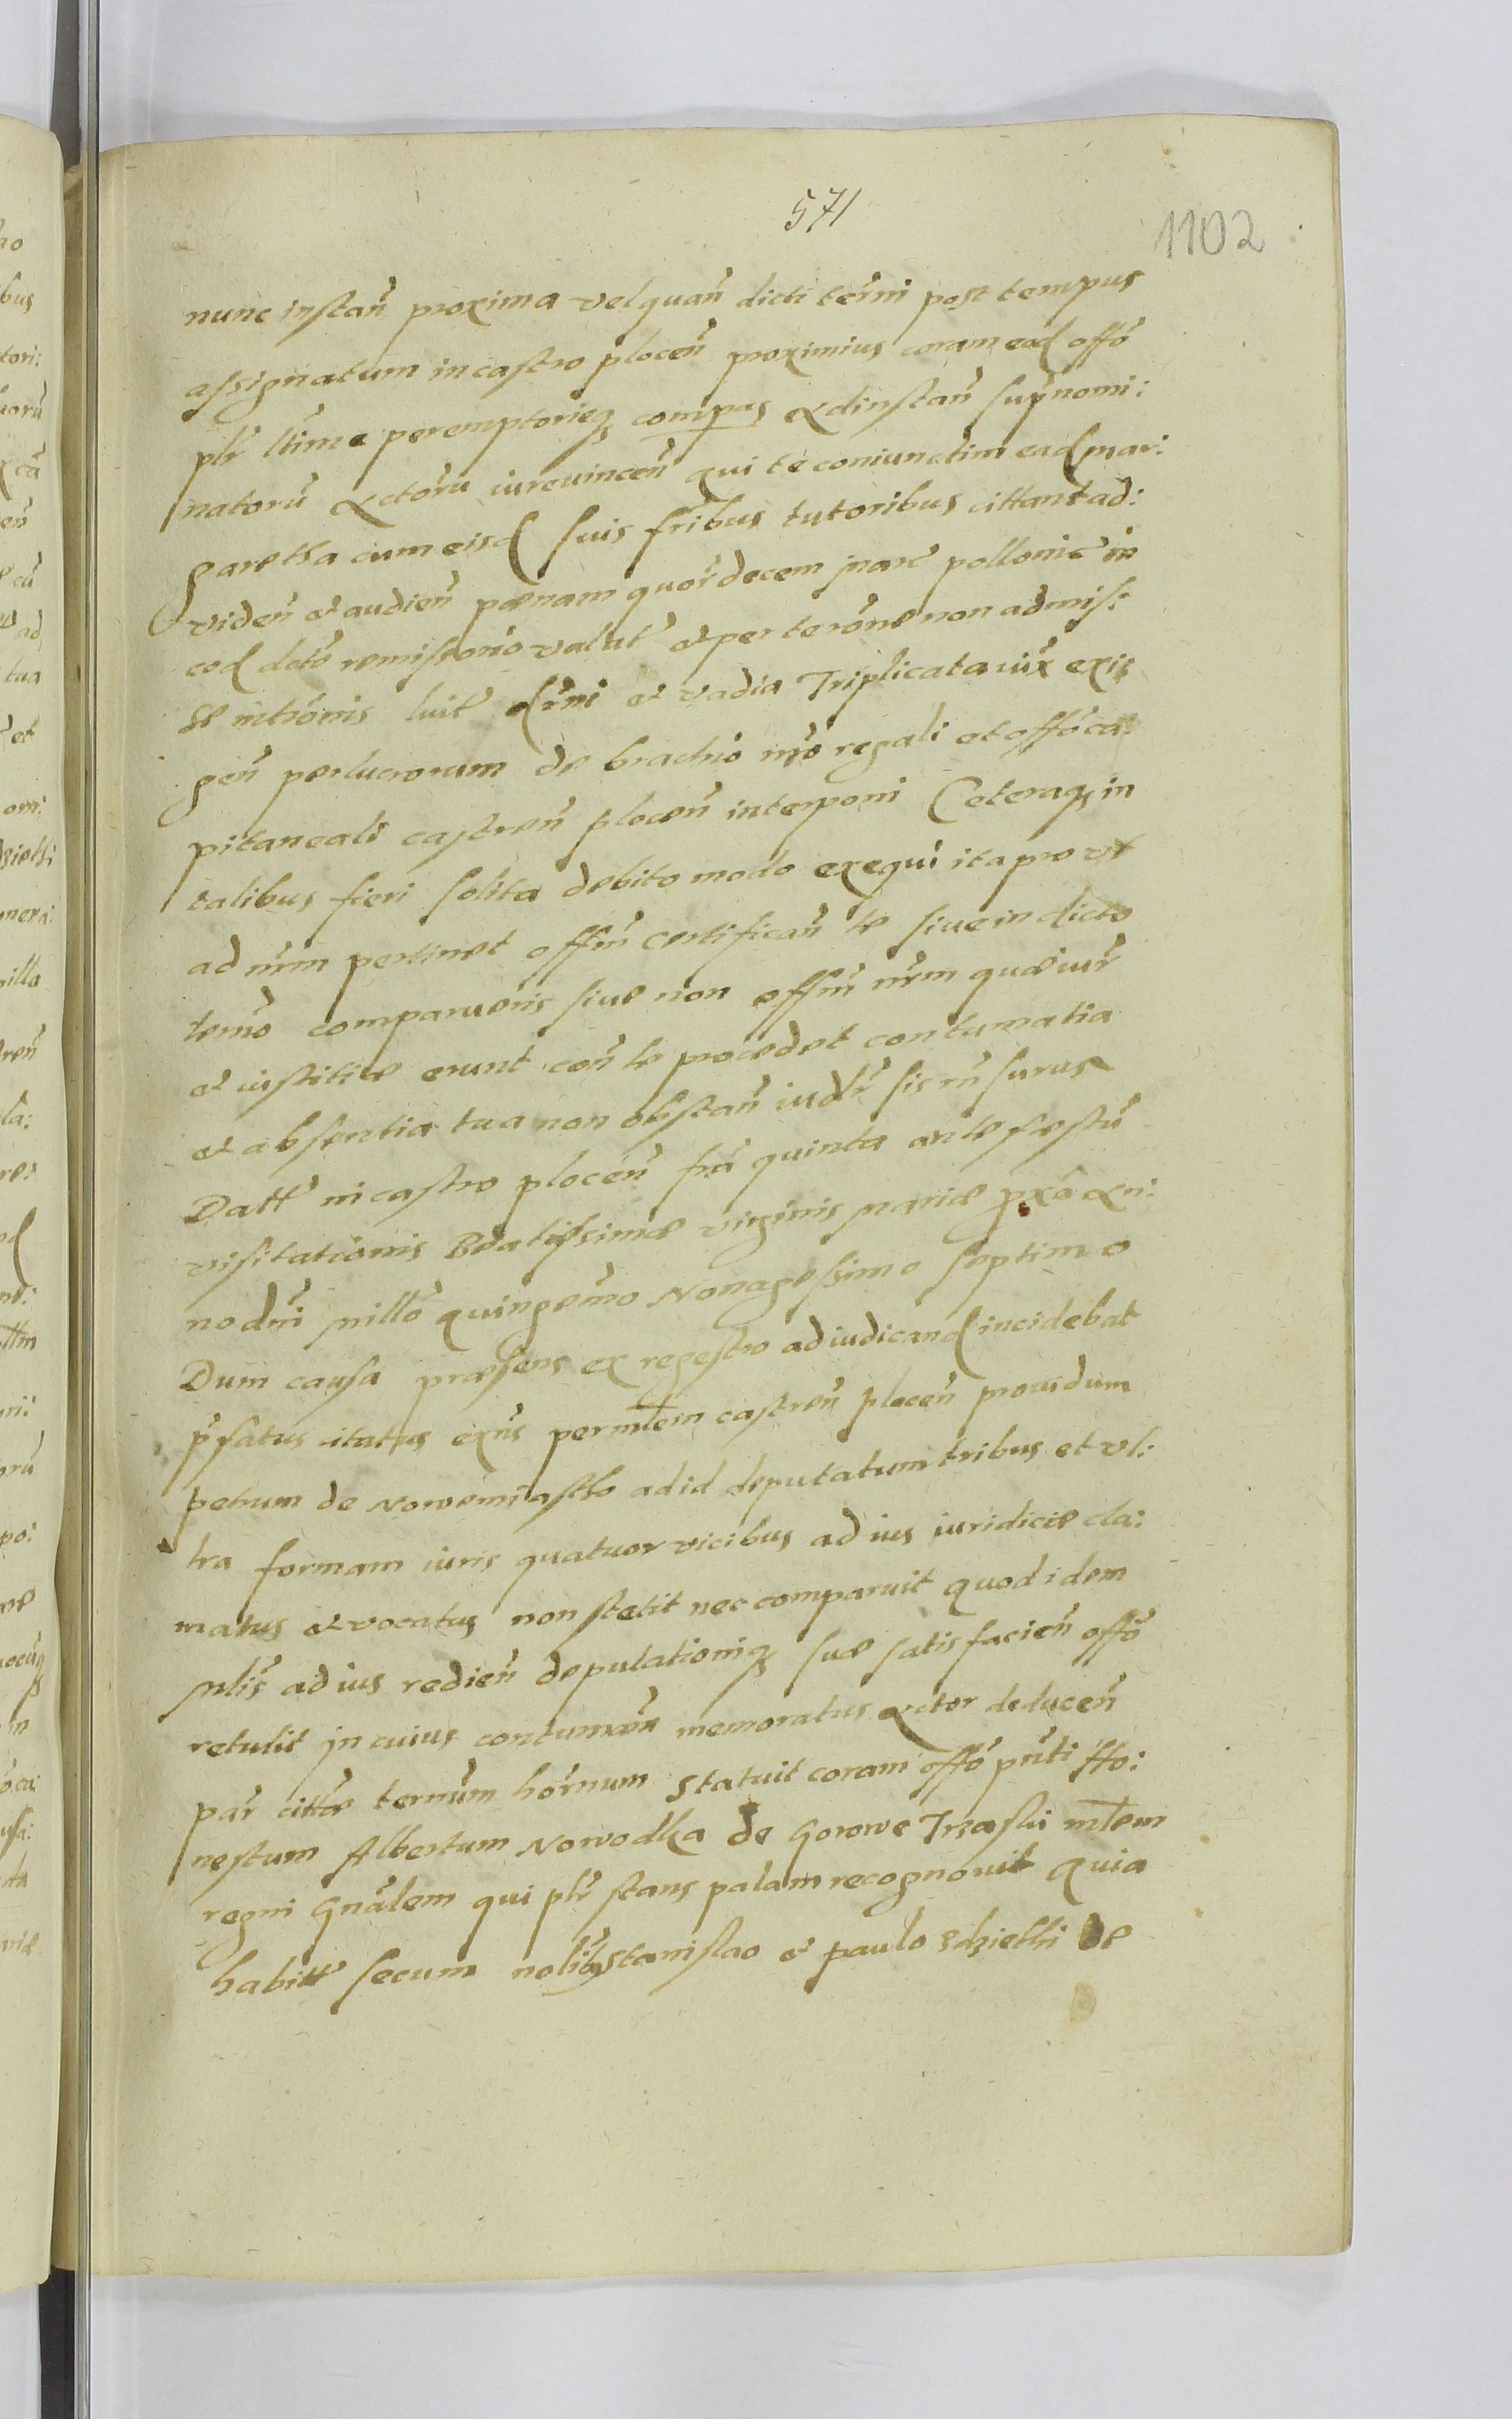 571
1102
nunc instan̄ proxima vel quan̄ dicti term̄i post tempus
assignatum in castro plocen̄ proximius coram eod offō
plr̄ ltime peremptorieq compas Ad instan̄ supnomi:
natorū Actorū iurevincen̄ qui te coniunctim ead mar:
garetha cum eisd suis fribus tutoribus cittant ad:
viden̄ et audien̄ pœnam quordecem marc pollonic in
eod dcto remissorio valut et per terōne non admis:
se introm̄is luit et vadia Triplicata iux exi
gen̄ perlucrorum de brachio nrō regali et offō ca:
pitaneali castren̄ plocen̄ interponi Ceteraq in
talibus fieri solita debito modo exequi ita pro vt
ad nrm pertinet offm̄ certifican̄ te siue in dicto
termō comparueris siue non offm̄ nrm quæ iur̄
et iustitiæ erunt con̄ te procedet contumatia
et absentia tua non obstan̄ iudlr̄ sis rn̄surus
Datt in castro plocen̄ fr̄a quinta ante festū
visitationis Beatissimæ virginis mariæ pxā An:
no dn̄i millō quingem̄o Nonagessimo septimo
Dum causa præsens ex regestro ad iudicand incidebat
pr̄fatus citatus exn̄s per mltem castren̄ plocen̄ prouidum
petrum de Nowemiastho ad id deputatum tribus et vl:
tra formam iuris quatuor vicibus ad ius iuridicie cla:
matus et vocatus non stetit nec comparuit quod idem
mlis̄ ad ius redien̄ deputationiq suæ satis facien̄ offō
retulit in cuius contuman̄ memoratus Actor deducen̄
par̄ cittæ termūm horn̄um statuit coram offō pn̄ti Ho:
nestum Albertum Nowodka de Gorowe Trzaski mltem
regni Gnālem qui plr̄ stans palam recognouit Quia
habitt secum nolibq stanislao et paulo de